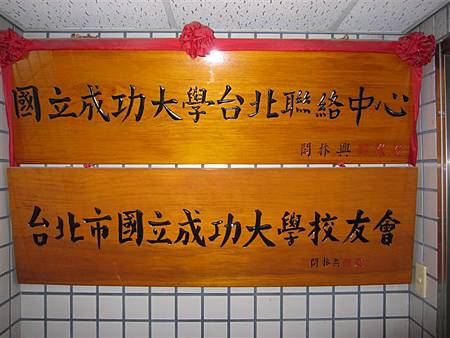 國立成功大學台北聯絡中心
台北市國立成功大學校友會